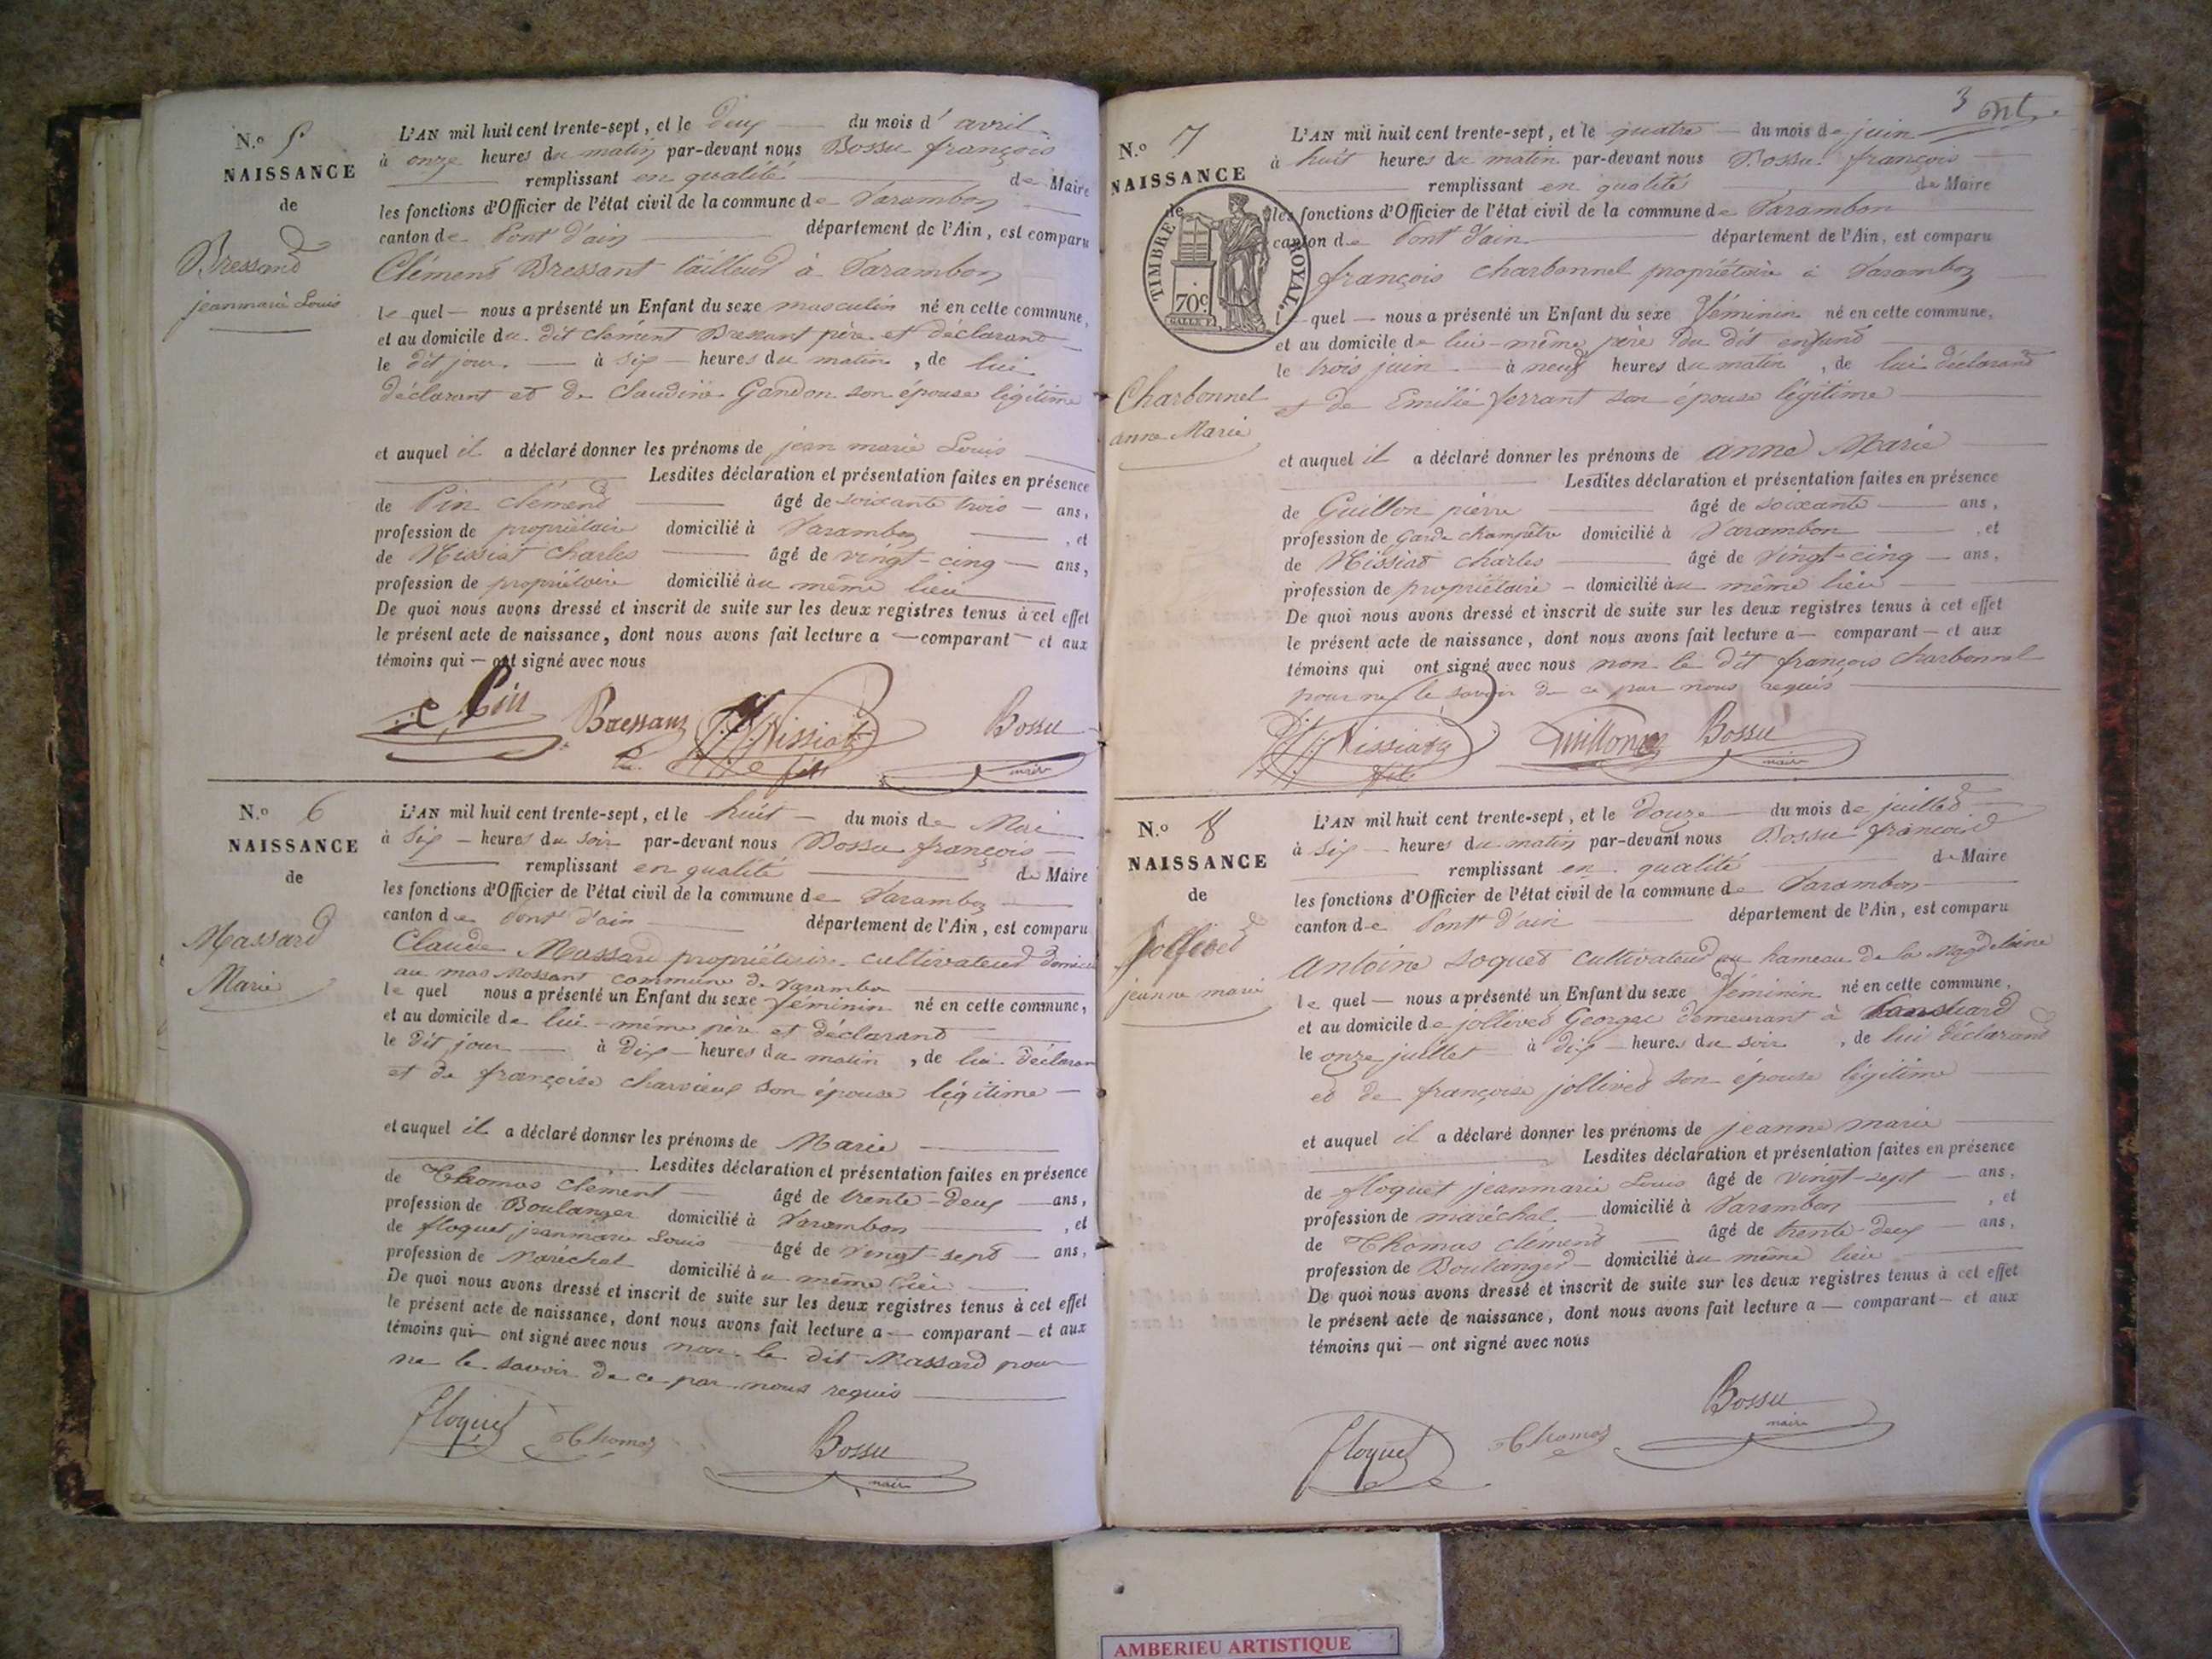 N.o 5
NAISSANCE
de
Bressand
jeanmarie Louis
L'AN mil huit cent trente-sept, et le deux du mois d' avril
à onze heures du matin par-devant nous Bossu françois
remplissant en qualité de Maire
les fonctions d'Officier de l'état civil de la commune de Varambon
canton de Pont d'ain département de l'Ain, est comparu
Clément Bressant tailleur à Varambon
le quel nous a présenté un Enfant du sexe masculin né en cette commune,
et au domicile du dit clément Bressant père et déclarant
le dit jour à six heures du matin, de lui
déclarant et de claudine Gandon son épouse légitime
et auquel il a déclaré donner les prénoms de jean marie Louis
Lesdites déclaration et présentation faites en présence
de Pin clément âgé de soixante trois ans,
profession de propriétaire domicilié à Varambon, et
de Missiat charles âgé de vingt-cinq ans,
profession de propriétaire domicilié au même lieu
De quoi nous avons dressé et inscrit de suite sur les deux registres tenus à cet effet
le présent acte de naissance, dont nous avons fait lecture a comparant et aux
témoins qui ont signé avec nous
Pin Bressant Missiat fils Bossu
maire
N.o 6
NAISSANCE
de
Massard
Marie
L'AN mil huit cent trente-sept, et le huit du mois de Mai
à six heures du soir par-devant nous Bossu françois
remplissant en qualité de Maire
les fonctions d'Officier de l'état civil de la commune de Varambon
canton de Pont d'ain département de l'Ain, est comparu
Claude Massard propriétaire cultivateur
au mas Mossant commune de Varambon
le quel nous a présenté un Enfant du sexe féminin né en cette commune,
et au domicile de lui-même père et déclarant
le dit jour à dix heures du matin, de lui déclarant
et de françoise charvieux son épouse légitime
et auquel il a déclaré donner les prénoms de Marie
Lesdites déclaration et présentation faites en présence
de Thomas clément âgé de trente-deux ans,
profession de Boulanger domicilié à Varambon, et
de floquet jeanmarie Louis âgé de vingt-sept ans,
profession de Maréchal domicilié au même lieu
De quoi nous avons dressé et inscrit de suite sur les deux registres tenus à cet effet
le présent acte de naissance, dont nous avons fait lecture a comparant et aux
témoins qui ont signé avec nous non le dit Massard pour
ne le savoir de ce par nous requis
floquet Thomas Bossu
maire
3
N.o 7
NAISSANCE
de
TIMBRE ROYAL
70c
Charbonnel
anne Marie
L'AN mil huit cent trente-sept, et le quatre du mois de juin
à huit heures du matin par-devant nous Bossu françois
remplissant en qualité de Maire
les fonctions d'Officier de l'état civil de la commune de Varambon
canton de Pont d'ain département de l'Ain, est comparu
françois charbonnel propriétaire à Varambon
quel nous a présenté un Enfant du sexe féminin né en cette commune,
et au domicile de lui-même père du dit enfant
le trois juin à neuf heures du matin, de lui déclarant
et de Emilie ferrant son épouse légitime
et auquel il a déclaré donner les prénoms de anne Marie
Lesdites déclaration et présentation faites en présence
de Guillon pierre âgé de soixante ans,
profession de garde champêtre domicilié à Varambon, et
de Missiat charles âgé de vingt-cinq ans,
profession de propriétaire domicilié au même lieu
De quoi nous avons dressé et inscrit de suite sur les deux registres tenus à cet effet
le présent acte de naissance, dont nous avons fait lecture a comparant et aux
témoins qui ont signé avec nous non le dit françois charbonnel
pour ne le savoir de ce par nous requis
Missiat fils Guillon Bossu
maire
N.o 8
NAISSANCE
de
Jollived
jeanne marie
L'AN mil huit cent trente-sept, et le douze du mois de juillet
à six heures du matin par-devant nous Bossu françois
remplissant en qualité de Maire
les fonctions d'Officier de l'état civil de la commune de Varambon
canton de Pont d'ain département de l'Ain, est comparu
Antoine soquet cultivateur au hameau de la Magdelaine
le quel nous a présenté un Enfant du sexe féminin né en cette commune,
et au domicile de jollived George demeurant à
le onze juillet à dix heures du soir, de lui déclarant
et de françoise jollived son épouse légitime
et auquel il a déclaré donner les prénoms de jeanne marie
Lesdites déclaration et présentation faites en présence
de floquet jeanmarie Louis âgé de vingt-sept ans,
profession de maréchal domicilié à Varambon, et
de Thomas clément âgé de trente-deux ans,
profession de Boulanger domicilié au même lieu
De quoi nous avons dressé et inscrit de suite sur les deux registres tenus à cet effet
le présent acte de naissance, dont nous avons fait lecture a comparant et aux
témoins qui ont signé avec nous
floquet Thomas Bossu
maire
AMBERIEU ARTISTIQUE